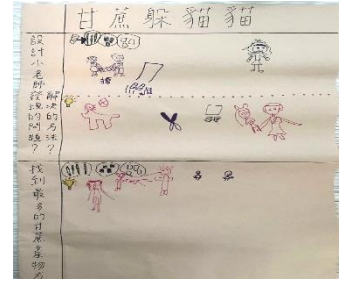 甘蔗躲貓貓
設計小老師發現的問題?
解決的方法?
找到最多的甘蔗產物